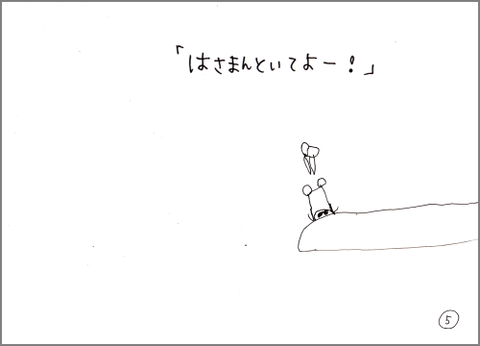 「はさまんといてよー!」
5